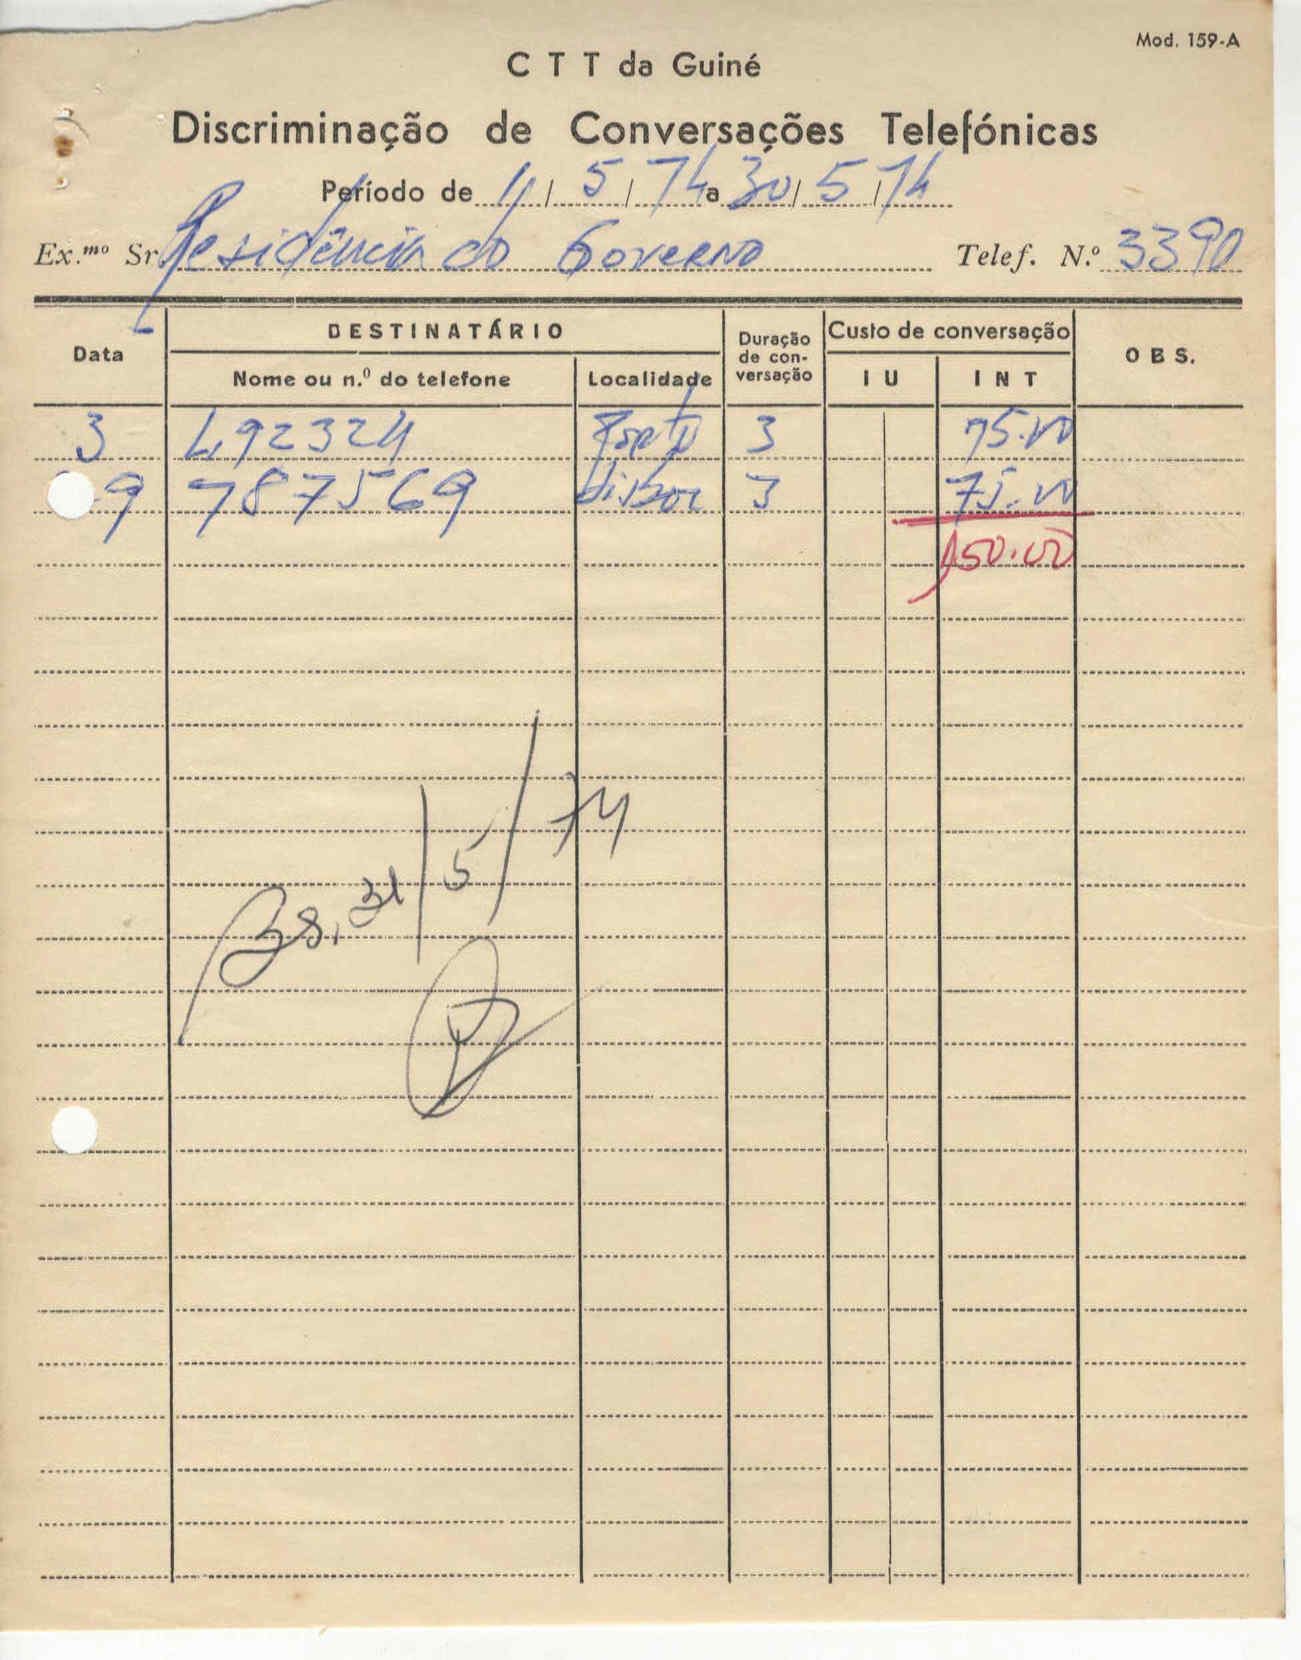 Mod. 159-A
C T T da Guiné
Discriminação de Conversações Telefónicas
Período de 1 / 5 / 74 a 30 / 5 / 74
Ex.mo Sr. Residência do Governo Telef. N.º 3390
Data DESTINATÁRIO Duração de conversação Custo de conversação OBS.
Nome ou n.º do telefone Localidade I U I N T
3 492324 Porto 3 75.00
9 787569 Lisboa 3 75.00
150.00
Bs, 31/5/74